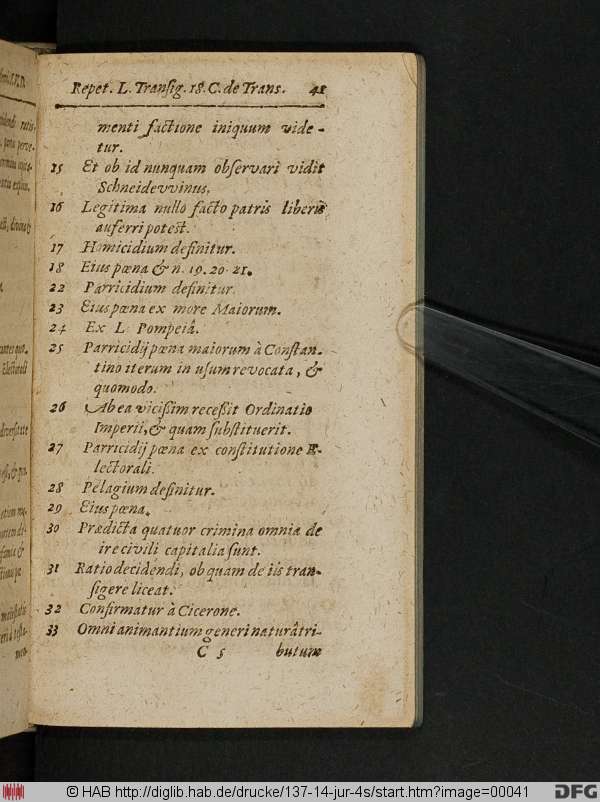 Repet. L. Transig. 18. C. de Trans. 41
menti factione iniquum vide-
tur.
15 Et ob id nunquam observari vidit
Schneidevvinus.
16 Legitima nullo facto patris liberis
auferri potest.
17 Homicidium definitur.
18 Eius pœna & n. 19. 20. 21.
22 Parricidium definitur.
23 Eius pœna ex more Maiorum.
24 Ex L. Pompeiâ.
25 Parricidij pœna maiorum à Constan-
tino iterum in usum revocata, &
quomodo.
26 Ab ea vicißim receßit Ordinatio
Imperii, & quam substituerit.
27 Parricidij pœna ex constitutione E-
lectorali.
28 Pelagium definitur.
29 Eius pœna.
30 Prædicta quatuor crimina omnia de
ire civili capitalia sunt.
31 Ratio decidendi, ob quam de iis tran-
sigere liceat.
32 Confirmatur à Cicerone.
33 Omni animantium generi naturâ tri-
C 5 butum
© HAB http://diglib.hab.de/drucke/137-14-jur-4s/start.htm?image=00041
DFG